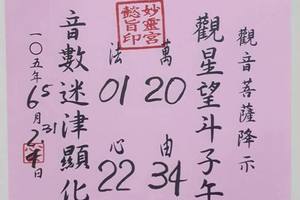 觀音菩薩降示
觀星望斗子午
萬 20 由 34
妙靈宮
懿旨印
法 01 心 22
音數迷津顯化
一〇五年6月日
5
31